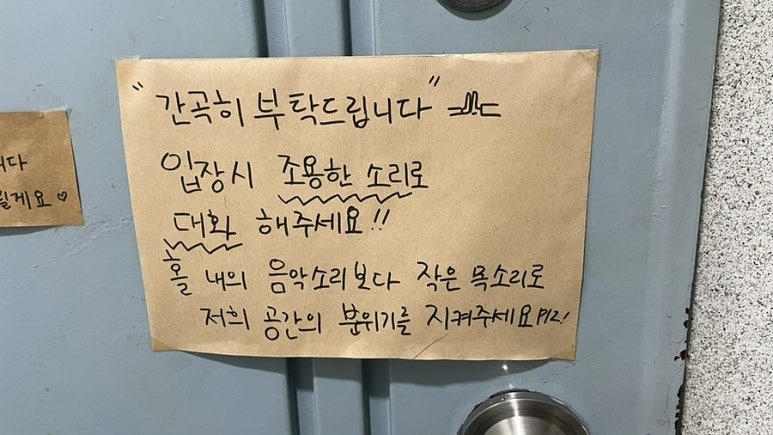 "간곡히 부탁드립니다"
입장시 조용한 소리로
대화 해주세요!!
홀 내의 음악소리보다 작은 목소리로
저희 공간의 분위기를 지켜주세요 plz!